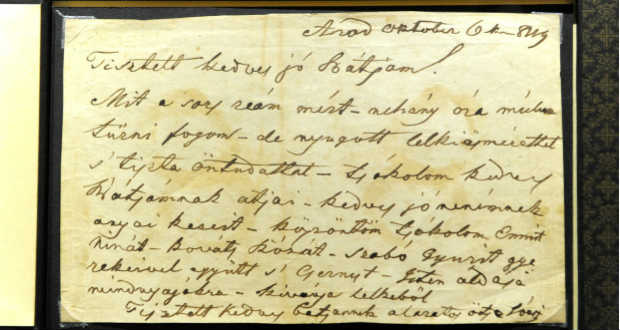 Arad október 6 kn 849
Tisztelt kedves jó Bátyám!
Mit a sors reám mért – nehány óra mulva
tűrni fogom – de nyugott lelkiösmérettel
s' tiszta öntudattal – Tsókolom kedves
Bátyámnak atyai – kedves jó nénémnek
anyai kezeit – köszöntöm Tsókolom Emmit
Ninát – Kovats Rózát – Szabó Gyurit gye
rekeivel együtt s' – Isten áldása
mindnyájokra – kivánja lelkéből
Tisztelt Kedves Bátjannk alázatos öcsé